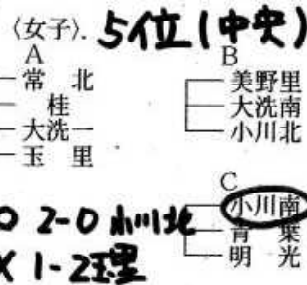 〈女子〉. 5位(中央)
A
常 北
桂
大洗一
玉 里
B
美野里
大洗南
小川北
C
小川南
青 葉
明 光
○ 2-0 小川北
× 1-2 玉里